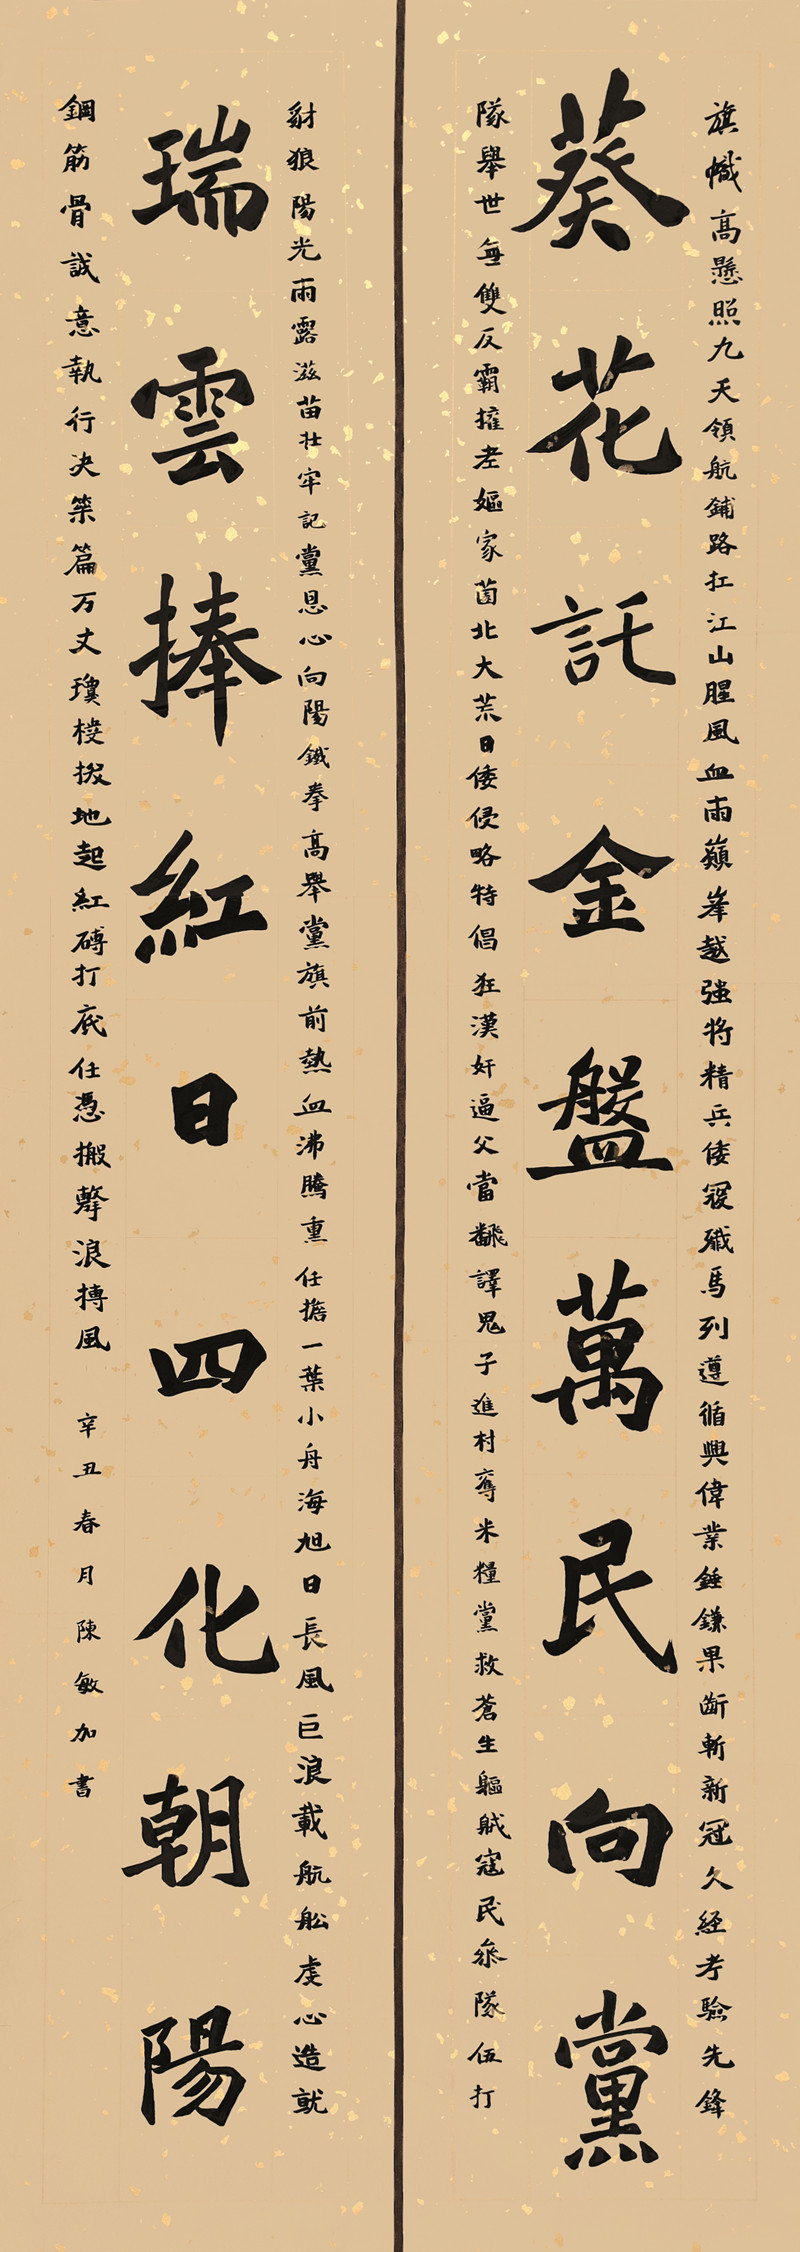 旗幟高懸照九天領航鋪路扛江山腥風血雨巔峯越强将精兵倭寇殲馬列遵循興偉業錘鎌果断斬新冠久經考驗先鋒
葵花託金盤萬民向黨
隊舉世無雙反霸擁孝嫗家茵北大荒日倭侵略特倡狂漢奸逼父當翻譯鬼子進村奪米糧黨救蒼生驅賊寇民衆隊伍打
豺狼陽光雨露滋苗壮牢記黨恩心向陽鐵拳高舉黨旗前熱血沸騰重任擔一葉小舟海旭日長風巨浪載航舩虔心造就
瑞雲捧紅日四化朝陽
鋼筋骨誠意執行决策篇万丈瓊楼拔地起紅磚打底任憑搬擊浪搏風
辛丑春月陳敏加書